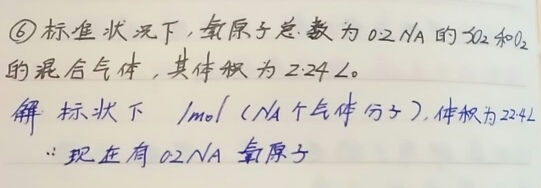 ⑥标准状况下，氧原子总数为0.2NA的SO2和O2
的混合气体，其体积为2.24L。
解 标状下 1mol（NA个气体分子），体积为22.4L
∵现在有0.2NA氧原子